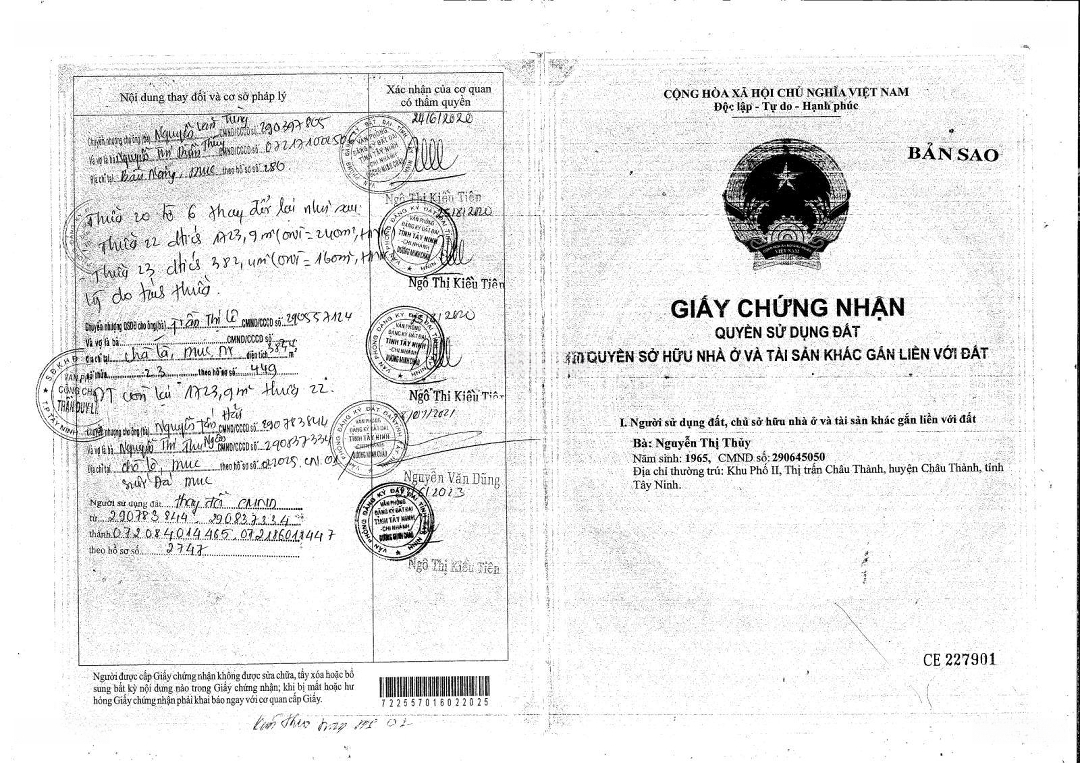 Nội dung thay đổi và cơ sở pháp lý
Xác nhận của cơ quan
có thẩm quyền
Chuyển nhượng cho ông (bà) Nguyễn Văn Tùng CMND/CCCD số: 290397805
24/6/2020
Và vợ là bà Nguyễn Thị Thủy CMND/CCCD số:
Địa chỉ tại Bàu Năng, DMC theo hồ sơ số 280
Ngô Thị Kiều Tiên
Thửa 20 tờ 6 thay đổi lại như sau:
Thửa 22 dtích 1723,9m²(ONT=240m²,
Thửa 23 dtích 382,4m²(ONT=160m²,
Lý do tách thửa.
Ngô Thị Kiều Tiên
Chuyển nhượng QSDĐ cho ông (bà) Trần Thị Lê CMND/CCCD số: 290557124
Và vợ là bà CMND/CCCD số:
Địa chỉ tại Chà Là, DMC, diện tích m²
số thửa 23 theo hồ sơ số: 449
Ngô Thị Kiều Tiên
DT còn lại 1723,9m² thửa 22.
Chuyển nhượng cho ông (bà) Nguyễn CMND/CCCD số: 290783844
Và vợ là bà Nguyễn Thị CMND/CCCD số: 290837334
Địa chỉ tại Chà Là, DMC theo hồ sơ số:
Suối Đá DMC
Nguyễn Văn Dũng
Người sử dụng đất: thay đổi CMND
từ 290783844 290837334
thành 072084014465, 072186018447
theo hồ sơ số 2747
Ngô Thị Kiều Tiên
Người được cấp Giấy chứng nhận không được sửa chữa, tẩy xóa hoặc bổ
sung bất kỳ nội dung nào trong Giấy chứng nhận; khi bị mất hoặc hư
hỏng Giấy chứng nhận phải khai báo ngay với cơ quan cấp Giấy.
722557016022025
CỘNG HÒA XÃ HỘI CHỦ NGHĨA VIỆT NAM
Độc lập - Tự do - Hạnh phúc
BẢN SAO
VIỆT NAM
GIẤY CHỨNG NHẬN
QUYỀN SỬ DỤNG ĐẤT
QUYỀN SỞ HỮU NHÀ Ở VÀ TÀI SẢN KHÁC GẮN LIỀN VỚI ĐẤT
I. Người sử dụng đất, chủ sở hữu nhà ở và tài sản khác gắn liền với đất
Bà: Nguyễn Thị Thủy
Năm sinh: 1965, CMND số: 290645050
Địa chỉ thường trú: Khu Phố II, Thị trấn Châu Thành, huyện Châu Thành, tỉnh
Tây Ninh.
CE 227901